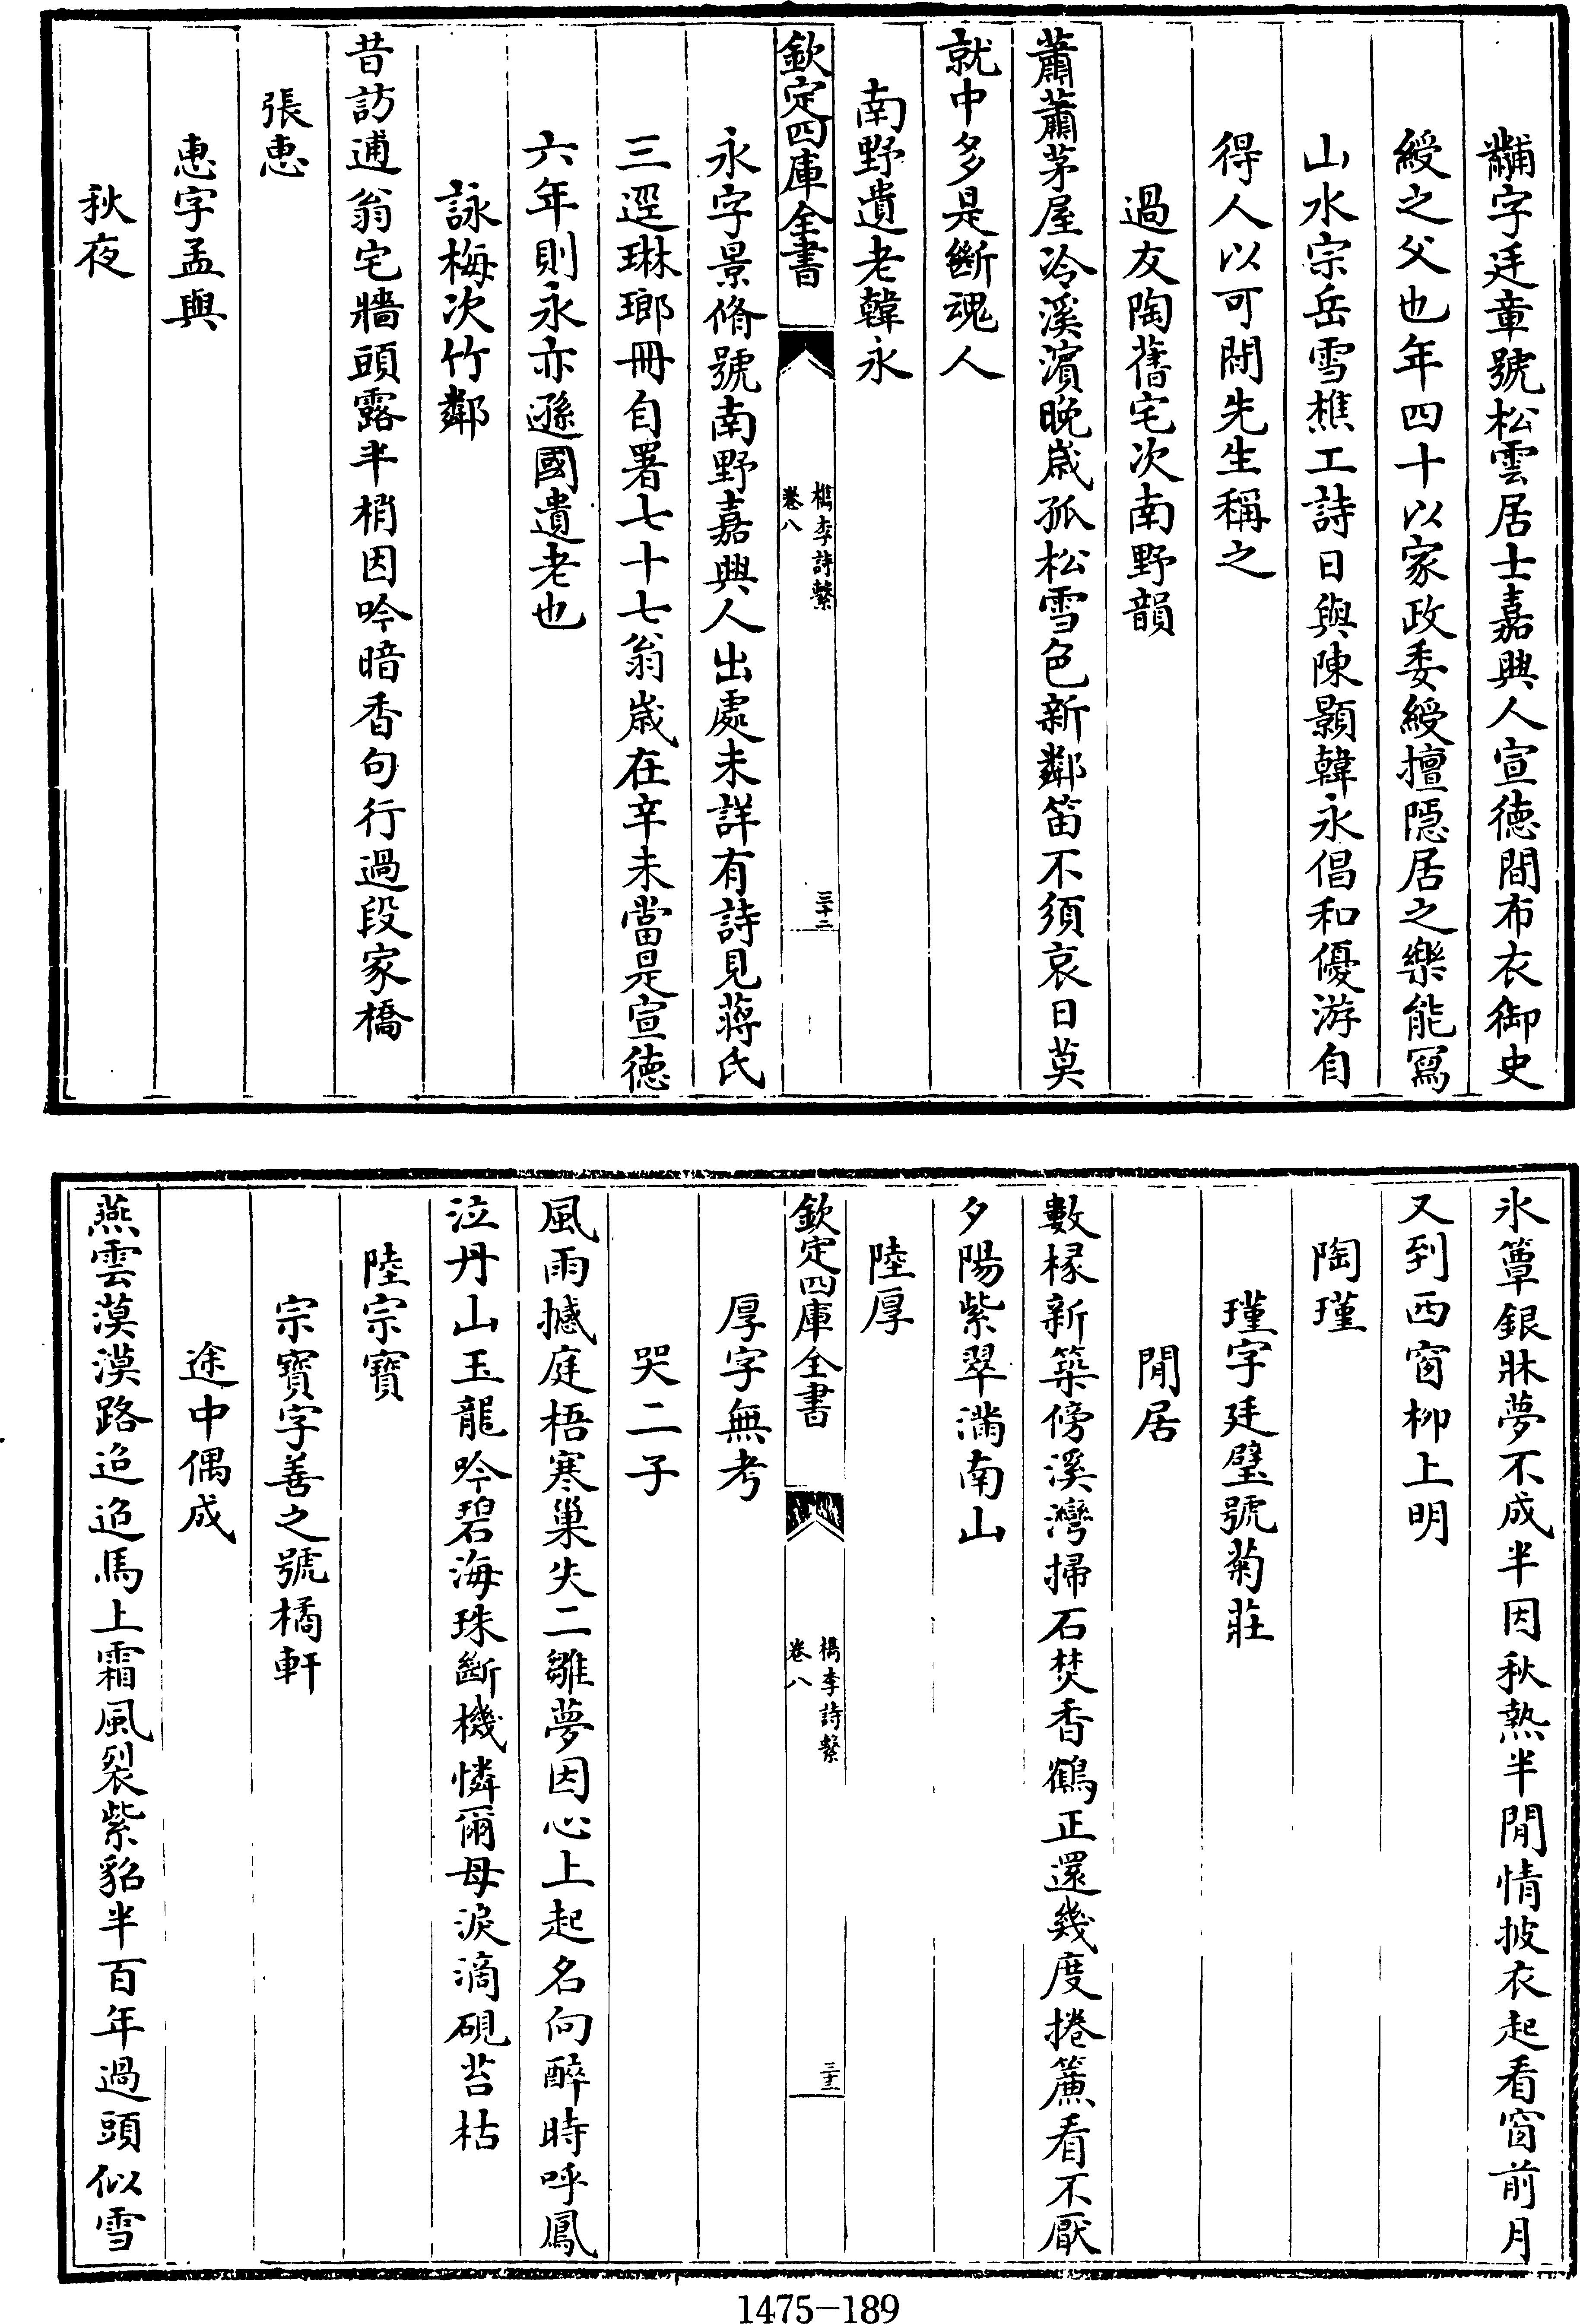 黼字廷章號松雲居士嘉興人宣徳間布衣御史
綬之父也年四十以家政委綬擅隠居之樂能冩
山水宗岳雪樵工詩日與陳顥韓永倡和優游自
得人以可閒先生稱之
過友陶舊宅次南野韻
蕭蕭茅屋冷溪濱晩歳孤松雪色新鄰笛不須哀日莫
就中多是斷魂人
南野遺老韓永
欽定四庫全書
檇李詩繫
卷八
三十二
永字景脩號南野嘉興人出處未詳有詩見蔣氏
三逕琳瑯冊自署七十七翁歳在辛未當是宣徳
六年則永亦遜國遺老也
詠梅次竹鄰
昔訪逋翁宅牆頭露半梢因吟暗香句行過段家橋
張惠
惠字孟與
秋夜
氷簟銀牀夢不成半因秋熱半閒情披衣起看窗前月
又到西窗柳上明
陶瑾
瑾字廷璧號菊莊
閒居
數椽新築傍溪灣掃石焚香鶴正還幾度捲簾看不厭
夕陽紫翠滿南山
陸厚
欽定四庫全書
檇李詩繫
卷八
三十三
厚字無考
哭二子
風雨撼庭梧寒巢失二雛夢因心上起名向醉時呼鳳
泣丹山玉龍吟碧海珠斷機憐爾母淚滴硯苔枯
陸宗寳
宗寳字善之號橘軒
途中偶成
燕雲漠漠路迢迢馬上霜風裂紫貂半百年過頭似雪
1475-189